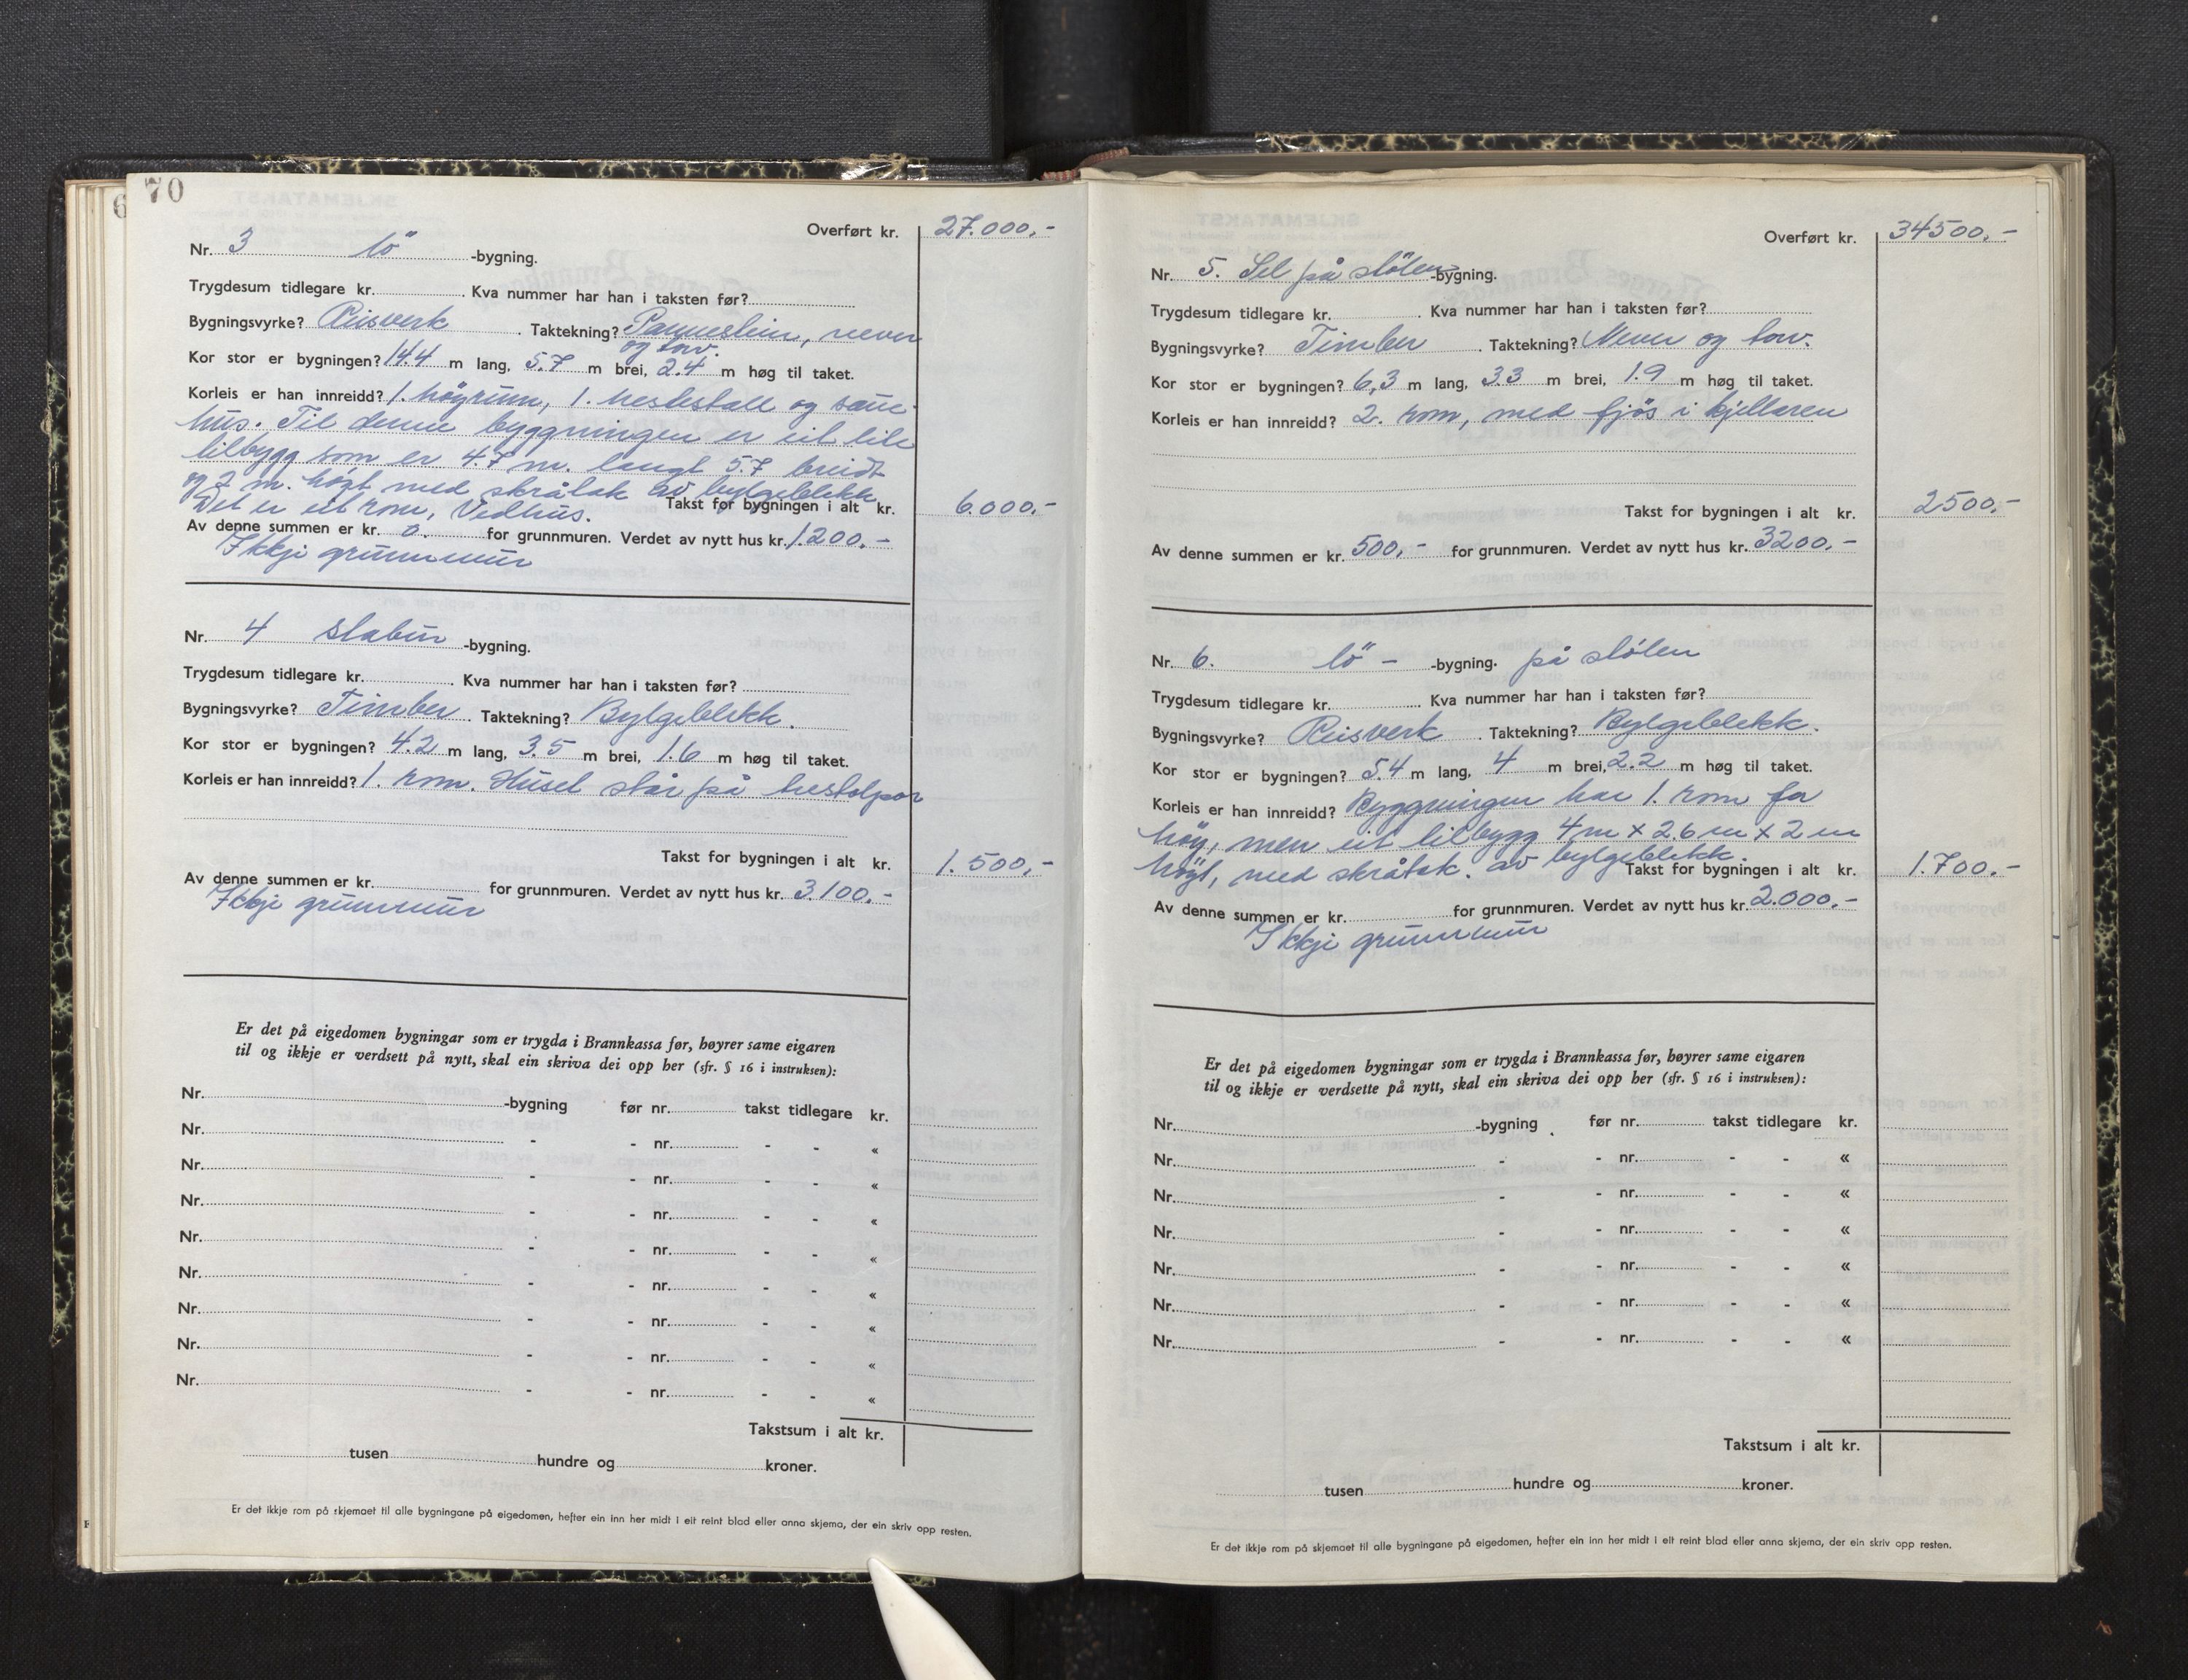 70
6
Overført kr. 27.000,-
Nr. 3 lö -bygning.
Trygdesum tidlegare kr. . Kva nummer har han i taksten før?
Bygningsvyrke? Reisverk . Taktekning? Pannestein, never
og torv.
Kor stor er bygningen? 14.4 m lang, 5.7 m brei, 2.4 m høg til taket.
Korleis er han innreidd? 1. höyrum, 1. hestestall og saue-
hus. Til denne byggningen er eit lite
tilbygg som er 4.7 m. langt 5.7 breidt
og 2 m. högt med skråtak av bylgeblekk
Det er eit rom, Vedhus. Takst for bygningen i alt kr. 6.000,-
Av denne summen er kr. 0. for grunnmuren. Verdet av nytt hus kr. 1.200.-
Ikkji grunnmur
Nr. 4 stabur -bygning.
Trygdesum tidlegare kr. . Kva nummer har han i taksten før?
Bygningsvyrke? Timber . Taktekning? Bylgeblekk.
Kor stor er bygningen? 4.2 m lang, 3.5 m brei, 1.6 m høg til taket.
Korleis er han innreidd? 1. rom. Huset står på trestolpar
Takst for bygningen i alt kr. 1.500,-
Av denne summen er kr. for grunnmuren. Verdet av nytt hus kr. 3.100.-
Ikkji grunnmur
Er det på eigedomen bygningar som er trygda i Brannkassa før, høyrer same eigaren
til og ikkje er verdsett på nytt, skal ein skriva dei opp her (sfr. § 16 i instruksen):
Nr. -bygning før nr. takst tidlegare kr.
Nr. - - nr. - - «
Nr. - - nr. - - «
Nr. - - nr. - - «
Nr. - - nr. - - «
Nr. - - nr. - - «
Nr. - - nr. - - «
Nr. - - nr. - - «
Nr. - - nr. - - «
Takstsum i alt kr.
tusen hundre og kroner.
Er det ikkje rom på skjemaet til alle bygningane på eigedomen, hefter ein inn her midt i eit reint blad eller anna skjema, der ein skriv opp resten.
Overført kr. 34500,-
Nr. 5. Sel på stölen -bygning.
Trygdesum tidlegare kr. . Kva nummer har han i taksten før?
Bygningsvyrke? Timber . Taktekning? Never og torv.
Kor stor er bygningen? 6,3 m lang, 3.3 m brei, 1.9 m høg til taket.
Korleis er han innreidd? 2. rom, med fjös i kjellaren
Takst for bygningen i alt kr. 2500,-
Av denne summen er kr. 500,- for grunnmuren. Verdet av nytt hus kr. 3200.-
Nr. 6. lö - -bygning. på stölen
Trygdesum tidlegare kr. . Kva nummer har han i taksten før?
Bygningsvyrke? Reisverk . Taktekning? Bylgeblekk.
Kor stor er bygningen? 5.4 m lang, 4 m brei, 2.2 m høg til taket.
Korleis er han innreidd? Byggningen har 1. rom for
höy, men eit tilbygg 4 m x 2.6 m x 2 m
högt, med skråtak. av bylgeblekk.
Takst for bygningen i alt kr. 1.700.-
Av denne summen er kr. for grunnmuren. Verdet av nytt hus kr. 2.000.-
Ikkji grunnmur
Er det på eigedomen bygningar som er trygda i Brannkassa før, høyrer same eigaren
til og ikkje er verdsette på nytt, skal ein skriva dei opp her (sfr. § 16 i instruksen):
Nr. -bygning før nr. takst tidlegare kr.
Nr. - - nr. - - «
Nr. - - nr. - - «
Nr. - - nr. - - «
Nr. - - nr. - - «
Nr. - - nr. - - «
Nr. - - nr. - - «
Takstsum i alt kr.
tusen hundre og kroner.
Er det ikkje rom på skjemaet til alle bygningane på eigedomen, hefter ein inn her midt i eit reint blad eller anna skjema, der ein skriv opp resten.